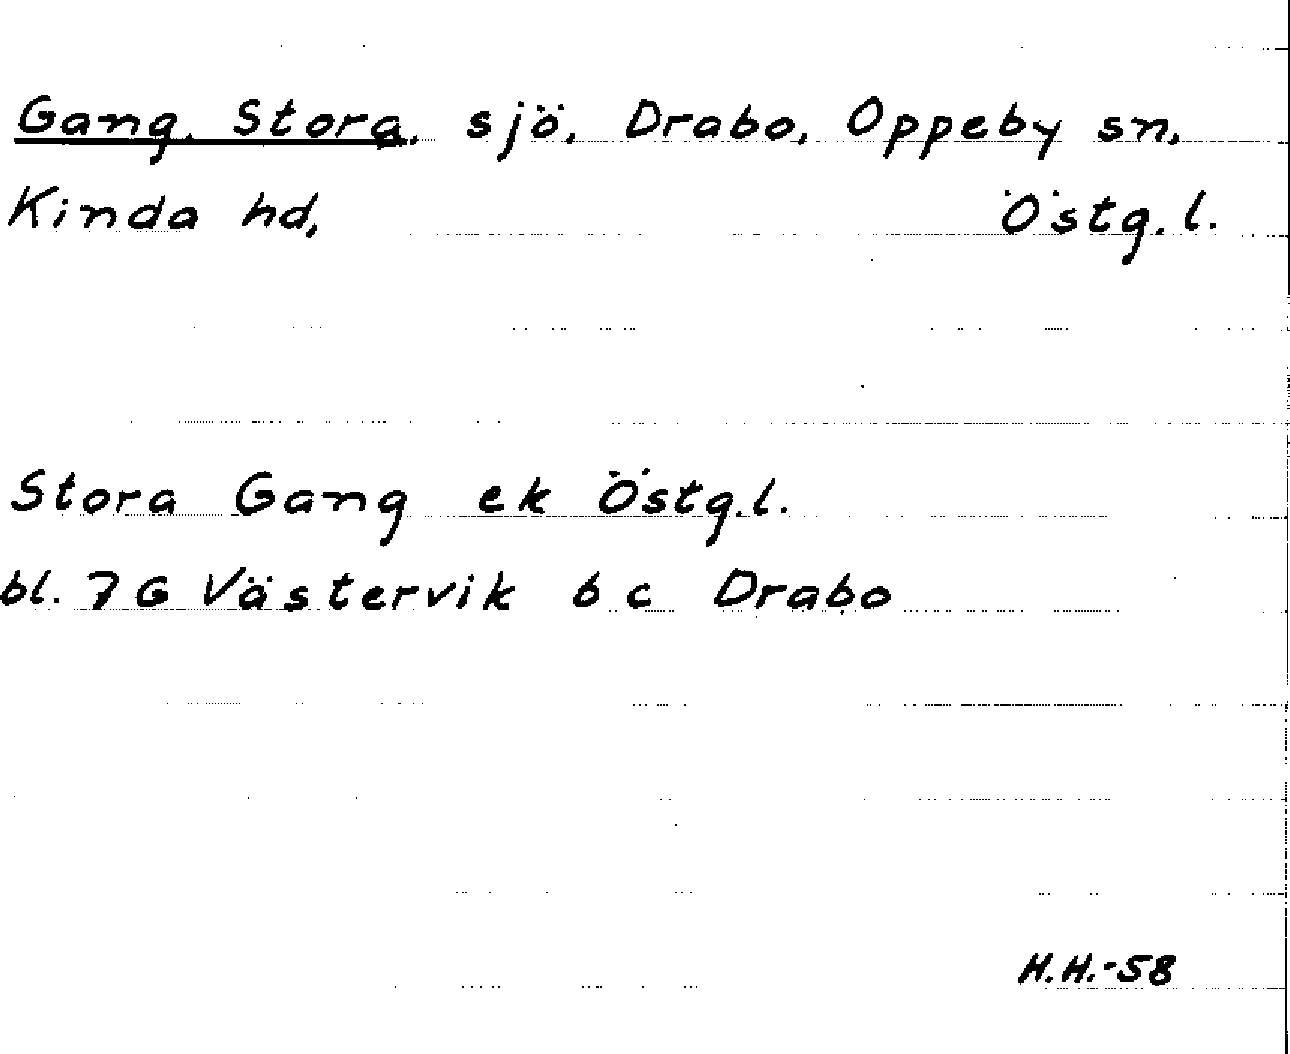 Gang, Stora, sjö, Drabo, Oppeby sn,
Kinda hd, Östg.l.
Stora Gang ek Östg.l.
bl. 7G Västervik 6c Drabo
H.H.-58